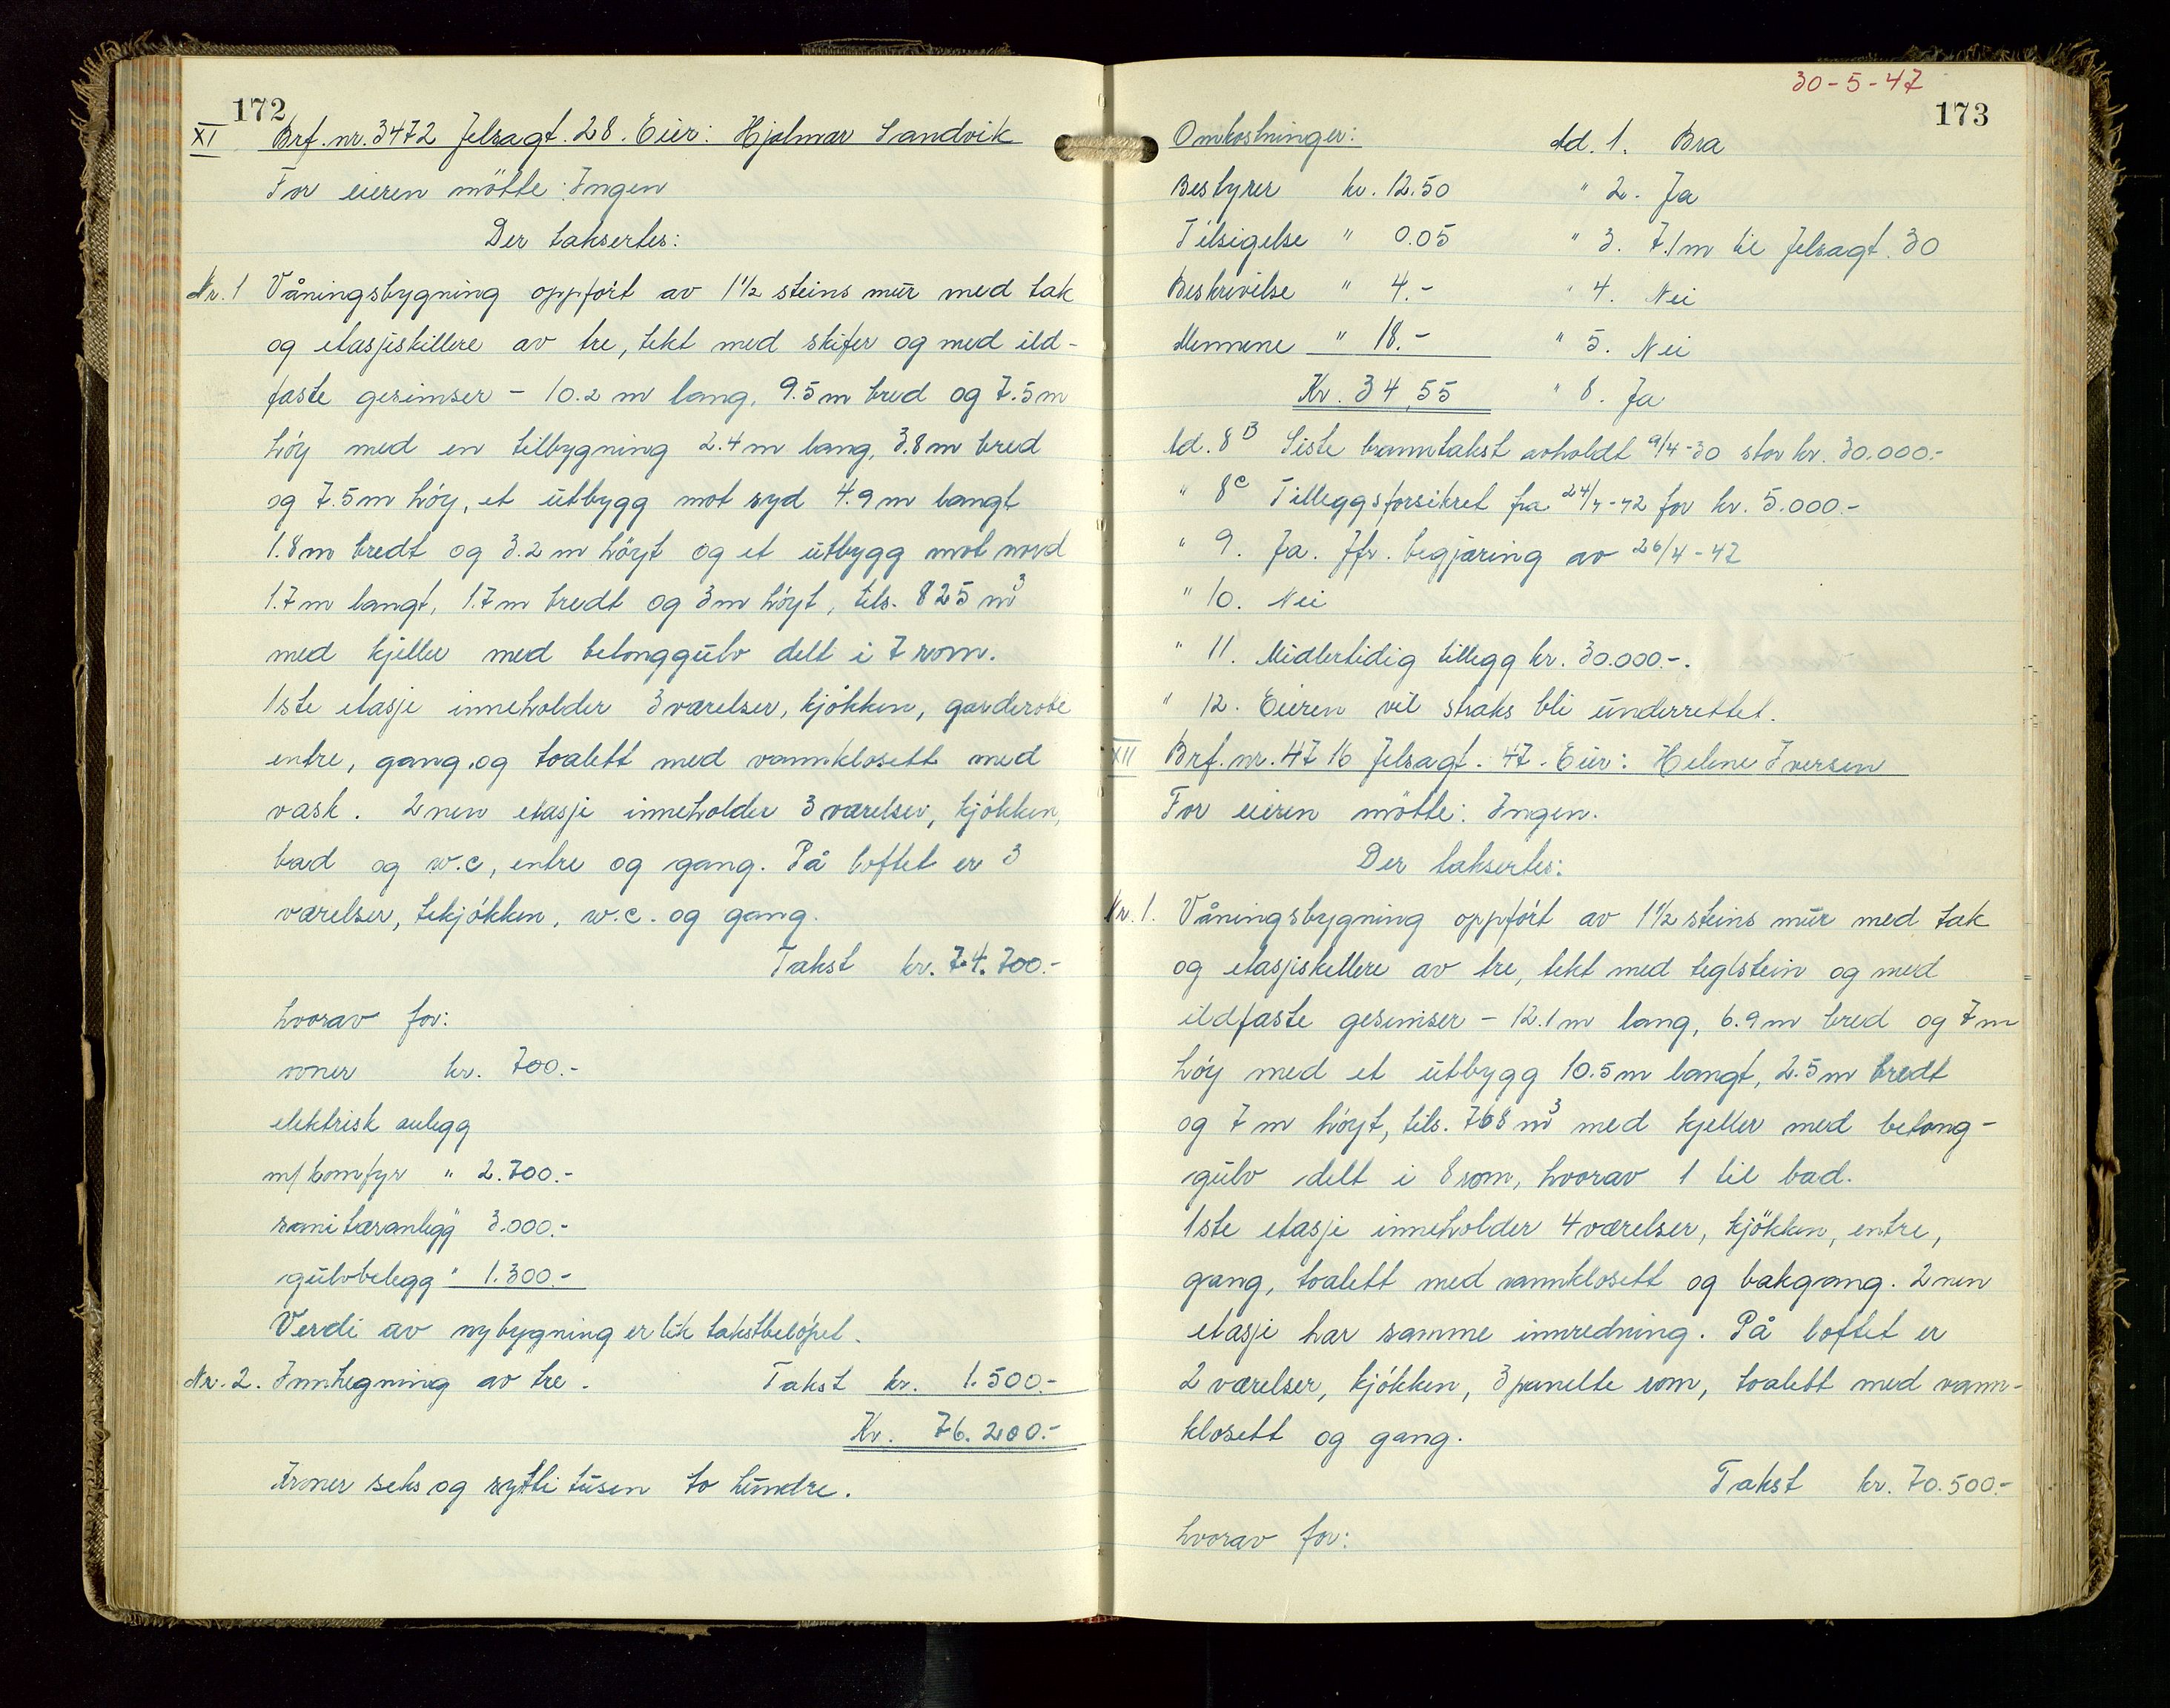 172
XI Brf. nr. 3472 Jelsagt. 28. Eier: Hjalmar Sandvik
For eieren mötte: Ingen
Der taksertes:
Nr. 1 Våningsbygning oppfört av 1 1/2 steins mur med tak
og etasjeskillere av tre, tekt med skifer og med ild-
faste gesimser - 10.2 m lang, 9.5 m bred og 7.5 m
höy med en tilbygning 2.4 m lang, 3.8 m bred
og 7.5 m höy, et utbygg mot syd 4.9 m langt
1.8 m bredt og 3.2 m höyt og et utbygg mot nord
1.7 m langt, 1.7 m bredt og 3 m höyt, tils. 825 m³
med kjeller med betonggulv delt i 7 rom.
1ste etasje inneholder 3 værelser, kjökken, garderobe
entre, gang og toalett med vannklosett med
vask. 2nen etasje inneholder 3 værelser, kjökken,
bad og w.c, entre og gang. På loftet er 3
værelser, tekjökken, w.c. og gang.
Takst kr. 74.700.-
hvorav for:
ovner kr. 700.-
elektrisk anlegg
m/komfyr " 2.700.-
sanitæranlegg 3.000.-
gulvbelegg " 1.300.-
Verdi av nybygning er lik takstbelöpet.
Nr. 2. Innhegning av tre. Takst kr. 1.500.-
Kr. 76.200.-
Kroner seks og sytti tusen to hundre.
30-5-47
173
Omkostninger: Ad. 1. Bra
Bestyrer kr. 12.50 " 2. Ja
Tilsigelse " 0.05 " 3. 7.1 m til Jelsagt. 30
Beskrivelse " 4.- " 4. Nei
Mennene " 18.- " 5. Nei
Kr. 34,55 " 8. Ja
Ad. 8 B Siste branntakst avholdt 9/4-30 stor kr. 30.000.-
" 8 c Tilleggsforsikret fra 24/4-42 for kr. 5.000.-
" 9. Ja. Jfr. begjæring av 26/4-47
" 10. Nei
" 11. Midlertidig tillegg kr. 30.000.-.
" 12. Eieren vil straks bli underrettet.
XII Brf. nr. 4716 Jelsagt. 47. Eier: Helene Iversen
For eieren mötte: Ingen.
Der taksertes:
Nr. 1. Våningsbygning oppfört av 1 1/2 steins mur med tak
og etasjeskillere av tre, tekt med teglstein og med
ildfaste gesimser - 12.1 m lang, 6.9 m bred og 7 m
höy med et utbygg 10.5 m langt, 2.5 m bredt
og 7 m höyt, tils. 768 m³ med kjeller med betong-
gulv delt i 8 rom, hvorav 1 til bad.
1ste etasje inneholder 4 værelser, kjökken, entre,
gang, toalett med vannklosett og bakgang. 2nen
etasje har samme innredning. På loftet er
2 værelser, kjökken, 3 panelte rom, toalett med vann-
klosett og gang.
Takst kr. 70.500.-
hvorav for: